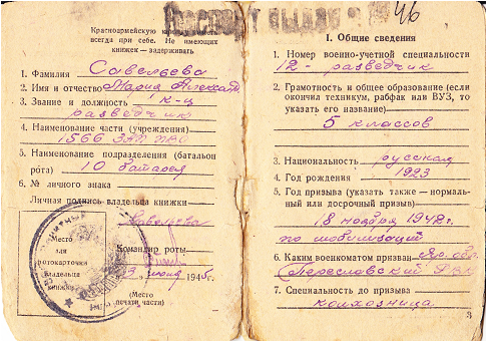 Паспорт выдан
46
Красноармейскую кн
всегда при себе. Не имеющих
книжек — задерживать
1. Фамилия Савельева
2. Имя и отчество Мария Александ
3. Звание и должность к-ц
разведчик
4. Наименование части (учреждения)
1566 ЗАП ПВО
5. Наименование подразделения (батальон
рота) 10 батарея
6. № личного знака
Личная подпись владельца книжки
Савельева
Место
для
фотокарточки
владельца
книжки
Командир роты
3 июня 1945г.
(Место
печати части)
I. Общие сведения
1. Номер военно-учетной специальности
12 - разведчик
2. Грамотность и общее образование (если
окончил техникум, рабфак или ВУЗ, то
указать его название)
5 классов
3. Национальность русская
4. Год рождения 1923
5. Год призыва (указать также — нормаль-
ный или досрочный призыв)
18 ноября 1942г.
по мобилизаций
6. Каким военкоматом призван Яр. обл.
Переславский РВК
7. Специальность до призыва
колхозница
3